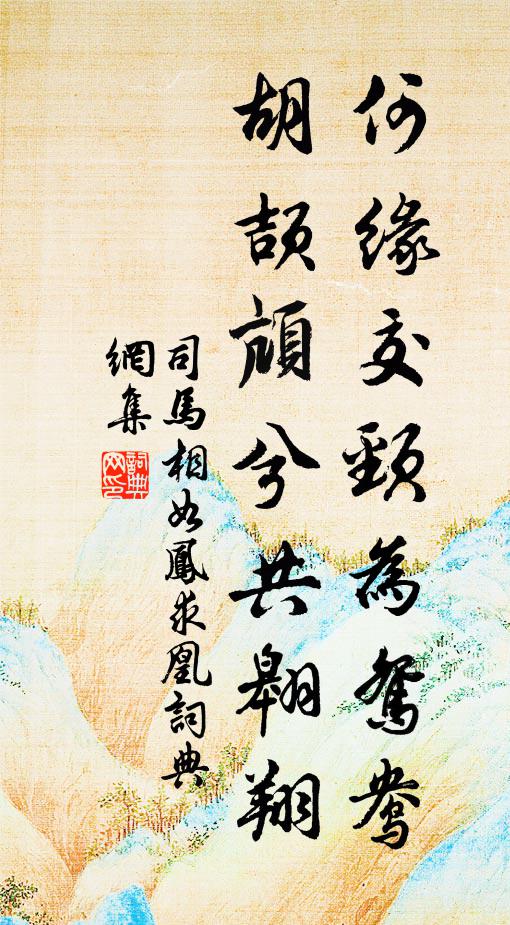 何緣交頸為鴛鴦
胡頡頏兮共翱翔
司馬相如鳳求凰詞典
網集
詞典
网印